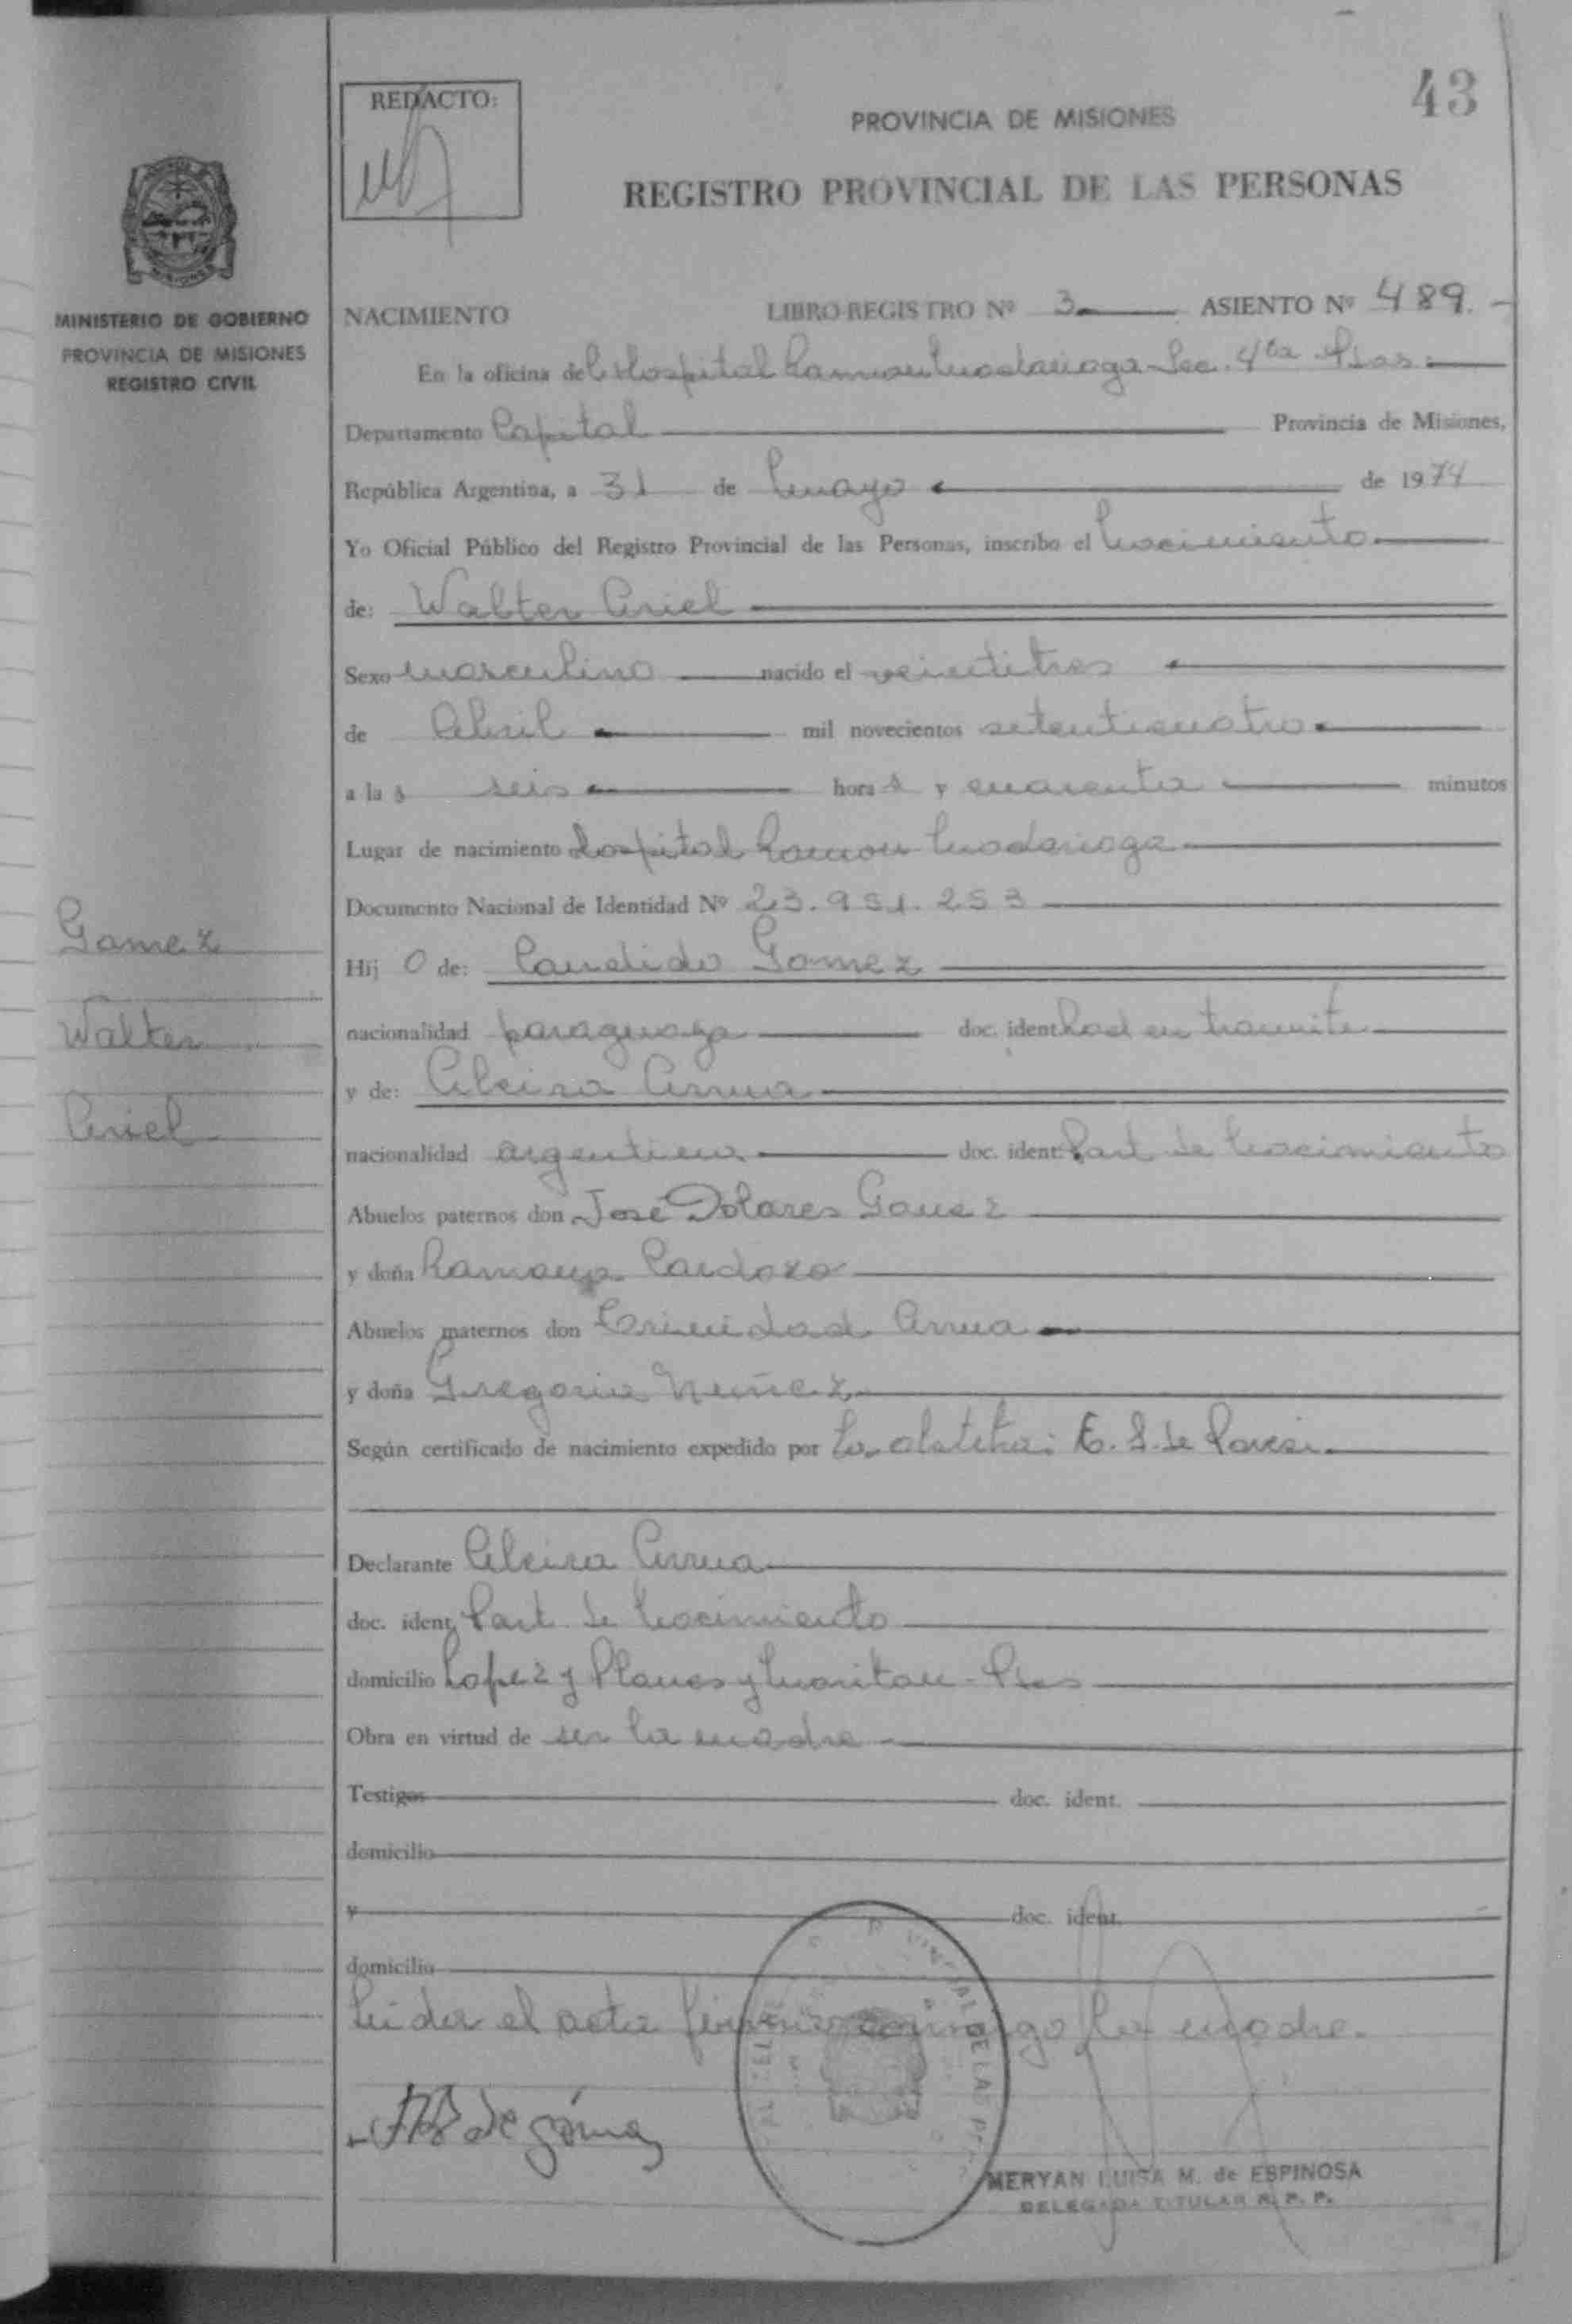 43
REDACTO:
PROVINCIA DE MISIONES
REGISTRO PROVINCIAL DE LAS PERSONAS
MISIONES
MINISTERIO DE GOBIERNO
PROVINCIA DE MISIONES
REGISTRO CIVIL
NACIMIENTO LIBRO-REGISTRO Nº 3 ASIENTO Nº 489.-
En la oficina del Hospital Ramon Madariaga-Sec. 4ta Pdas
Departamento Capital Provincia de Misiones,
República Argentina, a 31 de Mayo de 1974
Yo Oficial Público del Registro Provincial de las Personas, inscribo el Nacimiento
de: Walter Ariel
Sexo masculino nacido el veintitres
de Abril mil novecientos setenticuatro
a la s seis hora s y cuarenta minutos
Lugar de nacimiento Hospital Ramon Madariaga
Documento Nacional de Identidad Nº 23.951.253
Hij o de: Candido Gomez
nacionalidad paraguaya doc. ident. Rad en tramite
y de: Alcira Arrua
nacionalidad argentina doc. ident. Part de Nacimiento
Abuelos paternos don José Dolares Gomez
y doña Ramona Cardozo
Abuelos maternos don Trinidad Arrua
y doña Gregoria Nuñez
Según certificado de nacimiento expedido por La obstetra: E. S. de
Declarante Alcira Arrua
doc. ident. Part de Nacimiento
domicilio Lopez y Planes y - Pdas
Obra en virtud de ser la madre
Testigos doc. ident.
domicilio
y doc. ident.
domicilio
Leida el acta firma conmigo la madre.
de góme
MERYAN LUISA M. de ESPINOSA
DELEGADA TITULAR R. P. P.
Gomez
Walter
Ariel